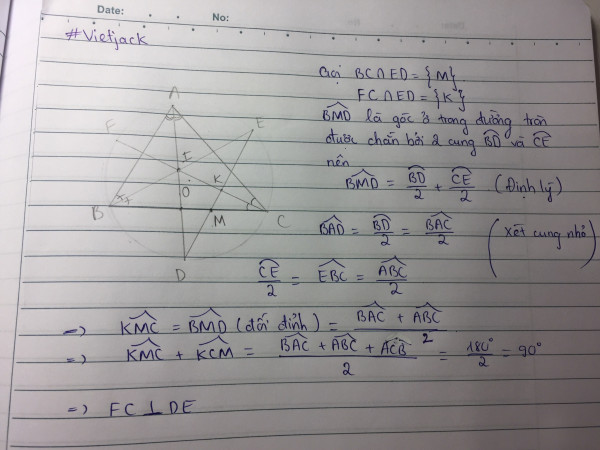 Date: No:
#Vietjack
Gọi BC∩ED = {M}
FC∩ED = {K}
BMD là góc ở trong đường tròn
được chắn bởi 2 cung BD và CE
nên
BMD = BD/2 + CE/2 (Định lý)
BAD = BD/2 = BAC/2 (Xét cung nhỏ)
CE/2 = EBC = ABC/2
=) KMC = BMD (đối đỉnh) = (BAC + ABC)/2
=) KMC + KCM = (BAC + ABC + ACB)/2 = 180°/2 = 90°
=) FC ⊥ DE
A
F
E
I
O
K
B
M
C
D